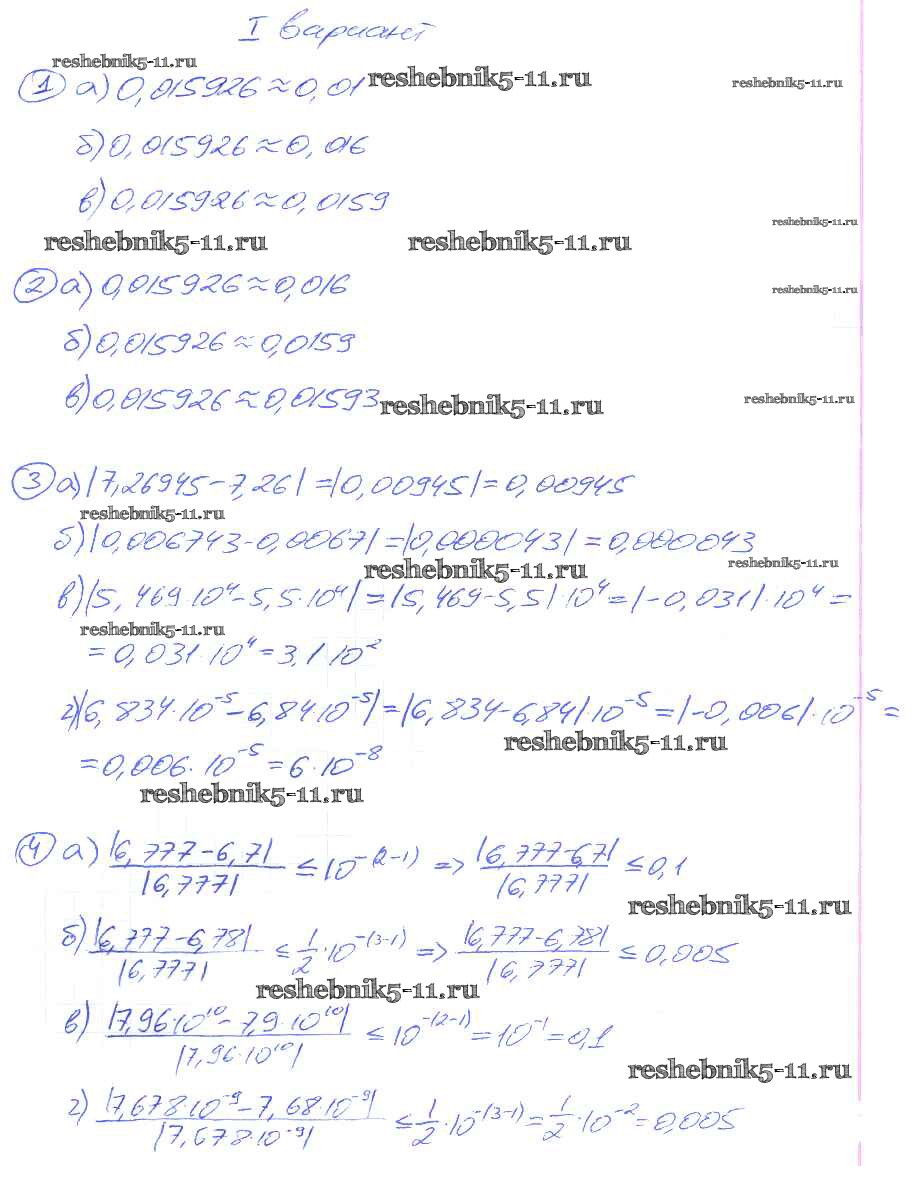 I вариант
reshebnik5-11.ru
① а) 0,015926 ≈ 0,01 reshebnik5-11.ru reshebnik5-11.ru
б) 0,015926 ≈ 0,016
в) 0,015926 ≈ 0,0159
reshebnik5-11.ru
reshebnik5-11.ru reshebnik5-11.ru
② а) 0,015926 ≈ 0,016 reshebnik5-11.ru
б) 0,015926 ≈ 0,0159
в) 0,015926 ≈ 0,01593 reshebnik5-11.ru reshebnik5-11.ru
③ а) |7,26945 - 7,26| = |0,00945| = 0,00945
reshebnik5-11.ru
б) |0,006743 - 0,0067| = |0,000043| = 0,000043
reshebnik5-11.ru reshebnik5-11.ru
в) |5,469·10⁴ - 5,5·10⁴| = |5,469 - 5,5|·10⁴ = |-0,031|·10⁴ =
reshebnik5-11.ru
= 0,031·10⁴ = 3,1·10²
г) |6,834·10⁻⁵ - 6,84·10⁻⁵| = |6,834 - 6,84|·10⁻⁵ = |-0,006|·10⁻⁵ =
reshebnik5-11.ru
= 0,006·10⁻⁵ = 6·10⁻⁸
reshebnik5-11.ru
④ а) |6,777 - 6,7| / |6,777| ≤ 10⁻⁽²⁻¹⁾ => |6,777 - 6,7| / |6,777| ≤ 0,1
reshebnik5-11.ru
б) |6,777 - 6,78| / |6,777| ≤ 1/2·10⁻⁽³⁻¹⁾ => |6,777 - 6,78| / |6,777| ≤ 0,005
reshebnik5-11.ru
в) |7,96·10¹⁰ - 7,9·10¹⁰| / |7,96·10¹⁰| ≤ 10⁻⁽²⁻¹⁾ = 10⁻¹ = 0,1
reshebnik5-11.ru
г) |7,678·10⁻⁹ - 7,68·10⁻⁹| / |7,678·10⁻⁹| ≤ 1/2·10⁻⁽³⁻¹⁾ = 1/2·10⁻² = 0,005